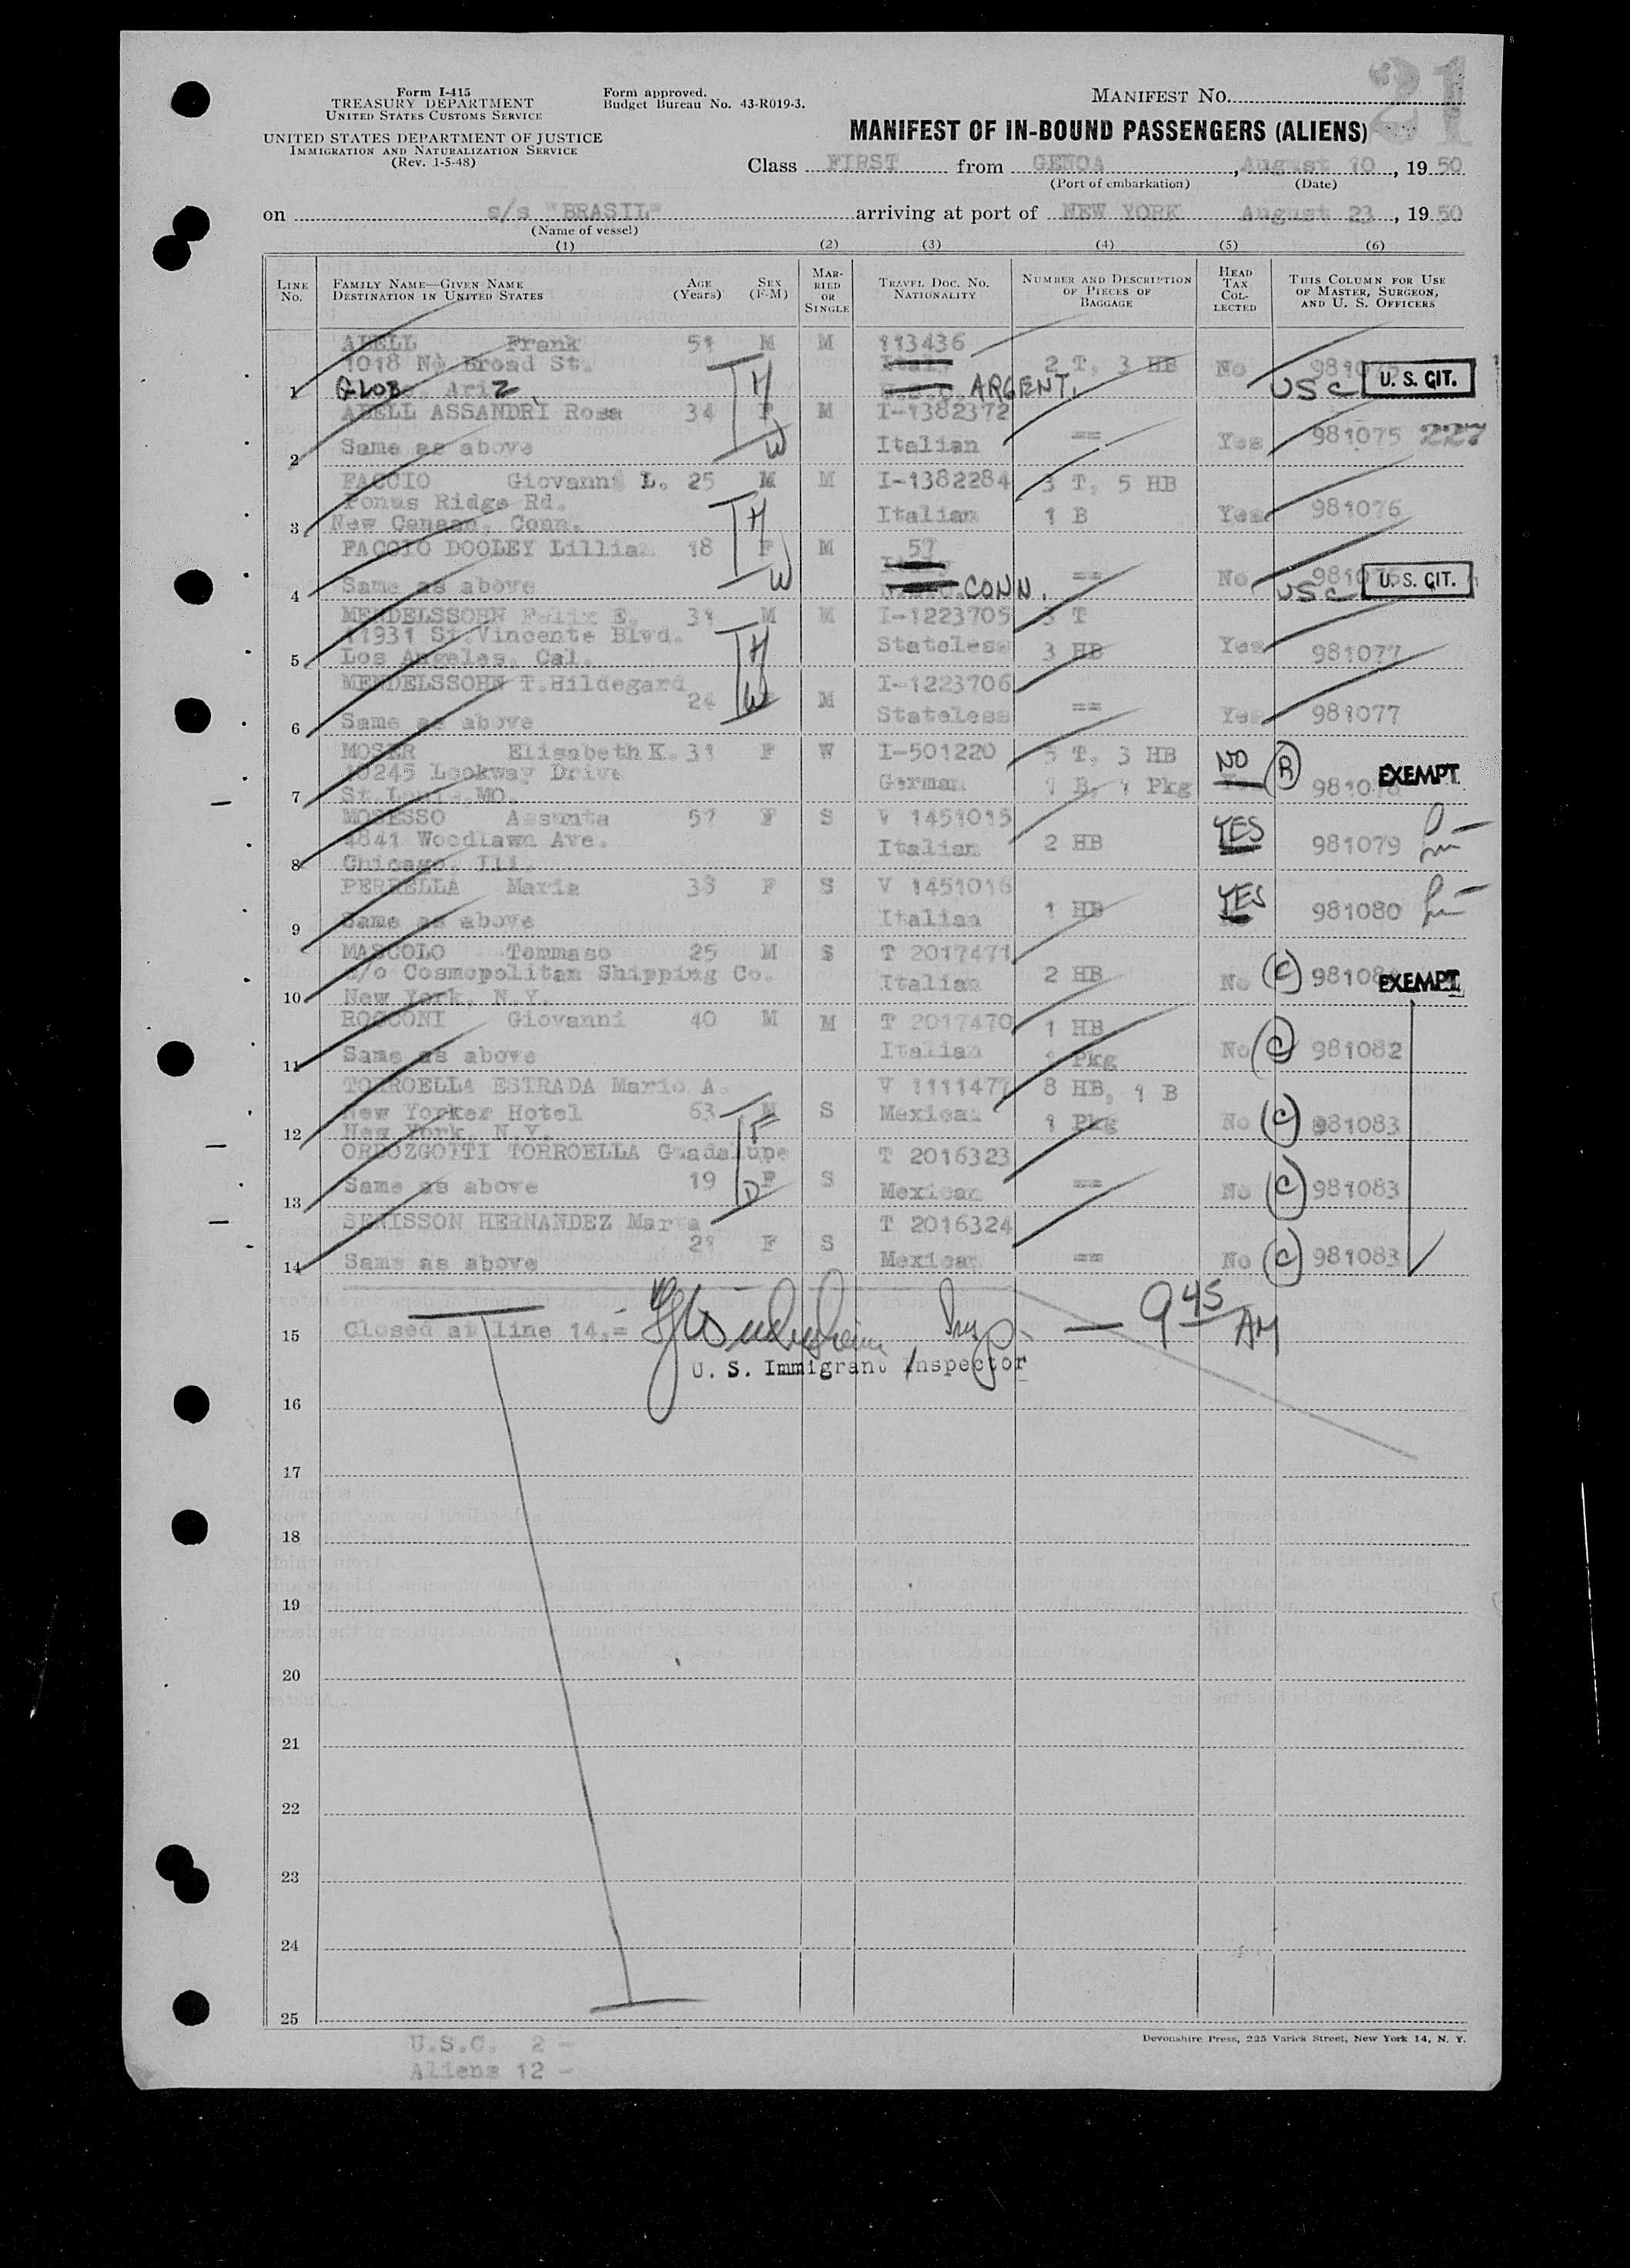 21
Form I-415
TREASURY DEPARTMENT
UNITED STATES CUSTOMS SERVICE
UNITED STATES DEPARTMENT OF JUSTICE
IMMIGRATION AND NATURALIZATION SERVICE
(Rev. 1-5-48)
Form approved.
Budget Bureau No. 43-R019-3.
MANIFEST NO.
MANIFEST OF IN-BOUND PASSENGERS (ALIENS)
Class FIRST from GENOA, August 10, 19 50
(Port of embarkation) (Date)
on s/s "BRASIL" arriving at port of NEW YORK August 23, 19 50
(Name of vessel)
(1) (2) (3) (4) (5) (6)
LINE NO. FAMILY NAME—GIVEN NAME DESTINATION IN UNITED STATES AGE (YEARS) SEX (F-M) MARRIED OR SINGLE TRAVEL DOC. NO. NATIONALITY NUMBER AND DESCRIPTION OF PIECES OF BAGGAGE HEAD TAX COLLECTED THIS COLUMN FOR USE OF MASTER, SURGEON, AND U. S. OFFICERS
ABELL Frank 51 M M 113436
1018 N. Broad St. Italy 2 T, 3 HB No 981075 U. S. CIT.
1 GLOBE, Ariz. ARGENT. USC
ABELL ASSANDRI Rosa 34 F M I-1382372
2 Same as above Italian == Yes 981075 227
FACCIO Giovanni L. 25 M M I-1382284 3 T, 5 HB
Ponus Ridge Rd.
3 New Canaan, Conn. Italian 1 B Yes 981076
FACCIO DOOLEY Lillian 18 F M 57
4 Same as above CONN. == No 981076 USC U. S. CIT.
MENDELSSOHN Felix E. 31 M M I-1223705 3 T
11931 St.Vincente Blvd.
5 Los Angeles, Cal. Stateless 3 HB Yes 981077
MENDELSSOHN T.Hildegard I-1223706
24 F M
6 Same as above Stateless == Yes 981077
MOSER Elisabeth K. 31 F W I-501220 5 T, 3 HB NO (R)
10245 Lookway Drive
7 St.Louis,MO. German 1 B, 1 Pkg 981078 EXEMPT
MOSESSO Assunta 57 F S V 1451015 YES
4841 Woodlawn Ave.
8 Chicago, Ill. Italian 2 HB 981079
PERRELLA Maria 38 F S V 1451016 YES
9 Same as above Italian 1 HB 981080
MASCOLO Tommaso 25 M S T 2017471
c/o Cosmopolitan Shipping Co.
10 New York, N.Y. Italian 2 HB No (C) 981081 EXEMPT
ROCCONI Giovanni 40 M M T 2017470 1 HB
11 Same as above Italian 1 Pkg No (C) 981082
TORROELLA ESTRADA Mario A. V 1111477 8 HB, 1 B
New Yorker Hotel 63 M S Mexican
12 New York, N.Y. 1 Pkg No (C) 981083
ORDOZGOITI TORROELLA Guadalupe T 2016323
13 Same as above 19 F S Mexican == No (C) 981083
SENISSON HERNANDEZ Marta T 2016324
21 F S
14 Same as above Mexican == No (C) 981083
H W
H W
H W
F D
15 Closed at line 14.= Insp. — 9 45 AM
U. S. Immigrant Inspector
16
17
18
19
20
21
22
23
24
25
Devonshire Press, 225 Varick Street, New York 14, N. Y.
U.S.C. 2 -
Aliens 12 -